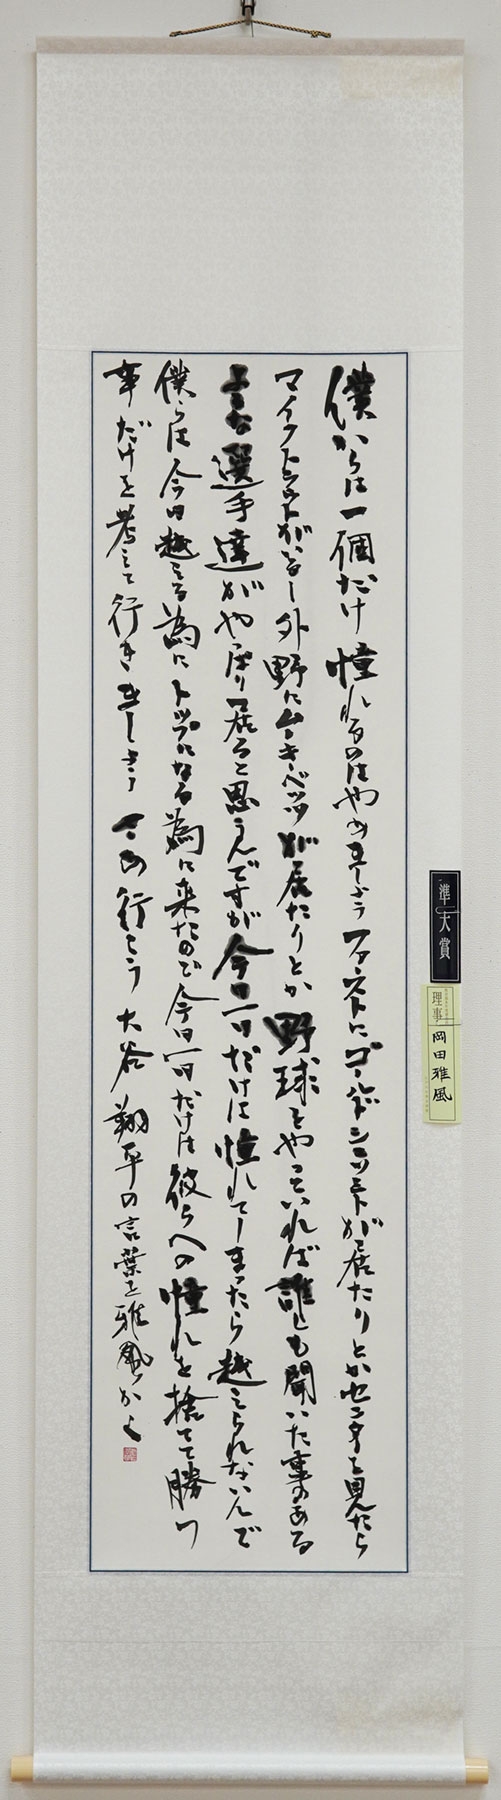 僕からは一個だけ憧れるのはやめましょうファーストにゴールドシュミットが居たりとかセンターを見たら
マイクトラウトがいるし外野にムーキーベッツが居たりとか野球をやっていれば誰しも聞いた事のある
ような選手達がやっぱり居ると思うんですが今日一日だけは憧れてしまったら越えられないんで
僕らは今日越える為にトップになる為に来たので今日一日だけは彼らへの憧れを捨てて勝つ
事だけを考えて行きましょう さあ行こう 大谷翔平の言葉を雅風かく
準大賞
理事
岡田雅風